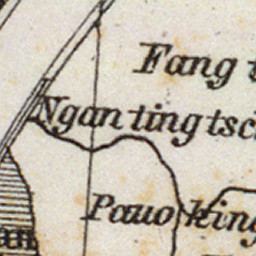 Fang t
Ngan ting tsc
Pauo king
an